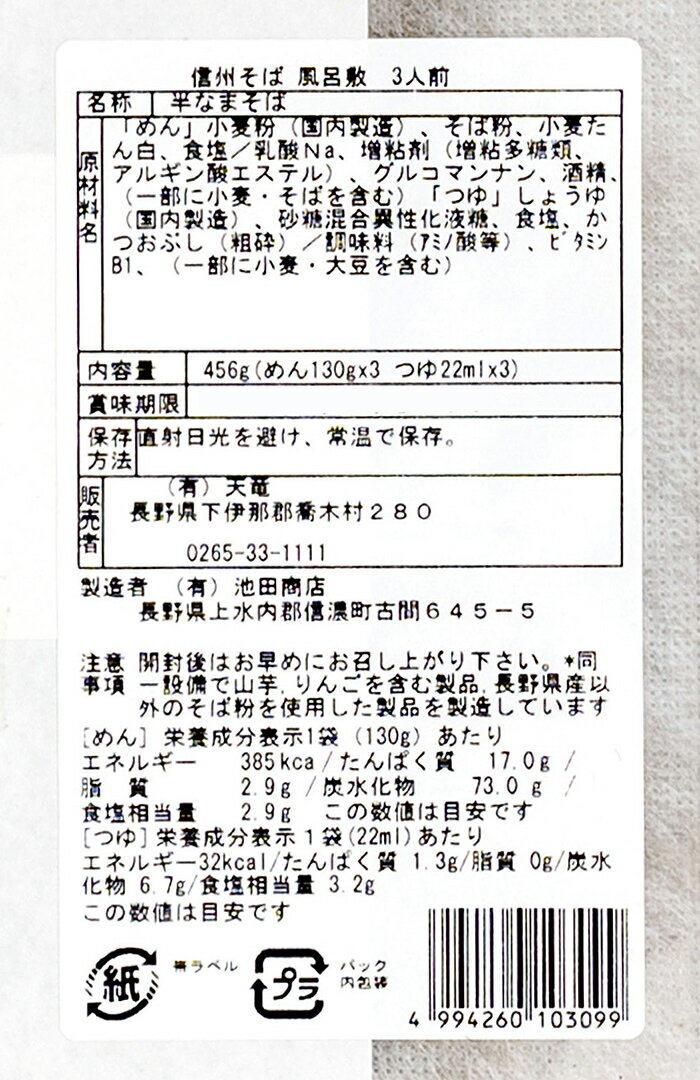 信州そば 風呂敷 3人前
名称 半なまそば
原材料名
「めん」小麦粉（国内製造）、そば粉、小麦た
ん白、食塩／乳酸Na、増粘剤（増粘多糖類、
アルギン酸エステル）、グルコマンナン、酒精、
（一部に小麦・そばを含む）「つゆ」しょうゆ
（国内製造）、砂糖混合異性化液糖、食塩、か
つおぶし（粗砕）／調味料（ｱﾐﾉ酸等）、ﾋﾞﾀﾐﾝ
B1、（一部に小麦・大豆を含む）
内容量 456g(めん130gx3 つゆ22mlx3)
賞味期限
保存方法 直射日光を避け、常温で保存。
販売者
（有）天竜
長野県下伊那郡喬木村２８０
0265-33-1111
製造者 （有）池田商店
長野県上水内郡信濃町古間６４５－５
注意事項 開封後はお早めにお召し上がり下さい。*同
一設備で山芋,りんごを含む製品,長野県産以
外のそば粉を使用した製品を製造しています
[めん] 栄養成分表示1袋（130g）あたり
エネルギー 385kca/たんぱく質 17.0g /
脂 質 2.9g /炭水化物 73.0 g /
食塩相当量 2.9g この数値は目安です
[つゆ]栄養成分表示１袋(22ml)あたり
エネルギー32kcal/たんぱく質 1.3g/脂質 0g/炭水
化物 6.7g/食塩相当量 3.2g
この数値は目安です
紙
帯ラベル
プラ
パック
内包装
4 994260 103099